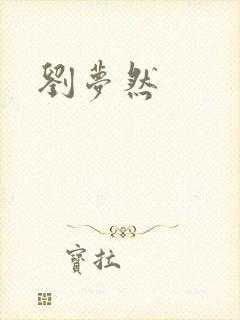 劉夢然
寶拉